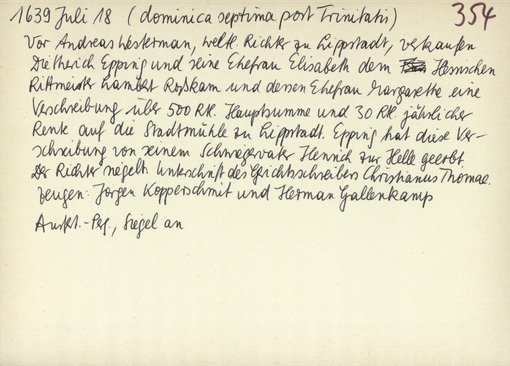 1639 Juli 18 (dominica septima post Trinitatis) 354
Vor Andreas Westerman, weltl. Richter zu Lippstadt, verkaufen
Dietherich Epping und seine Ehefrau Elisabeth dem Hessischen
Rittmeister Lambert Roßkam und dessen Ehefrau Margarethe eine
Verschreibung über 500 Rtl. Hauptsumme und 30 Rtl. jährlicher
Rente auf die Stadtmühle zu Lippstadt. Epping hat diese Ver-
schreibung von seinem Schwiegervater Henrich zur Helle geerbt.
Der Richter siegelt. Unterschrift des Gerichtsschreibers Christianus Thomae.
Zeugen: Jorgen Kopperschmit und Herman Gallenkamp
Ausf.-Perg., Siegel an